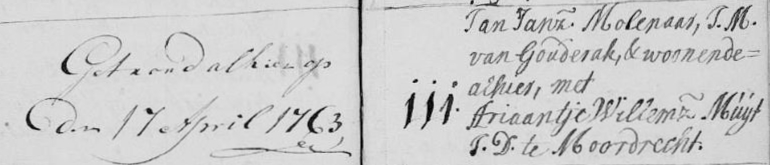 Getrouwd alhier op
den 17 April 1763,
Jan Janz. Molenaar, J.M.
van Gouderak, & woonende=
alhier, met
iii. Ariaantje Willemz. Müijt
J.D. te Moordrecht.